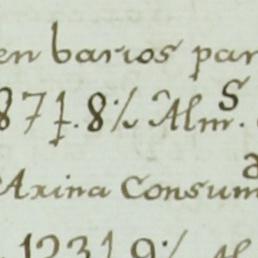 en barios par
87ƚ. 8 ⁒ Alm.ˢ
Axina Consumᵃ
1231 9⁒ Al